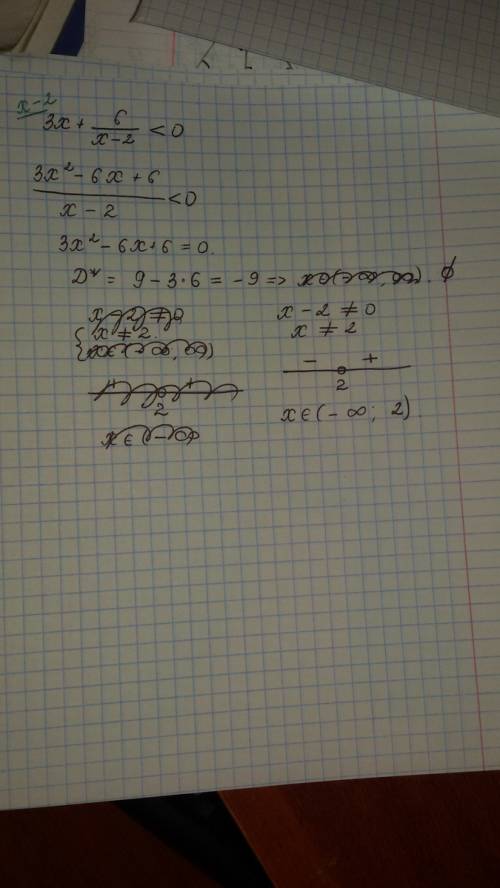 x-2
3x + 6/(x-2) < 0
(3x² - 6x + 6)/(x - 2) < 0
3x² - 6x + 6 = 0.
D* = 9 - 3·6 = -9 => ∅
{x ≠ 2.
2
x ∈ (-∞
x - 2 ≠ 0
x ≠ 2
- +
2
x ∈ (-∞; 2).